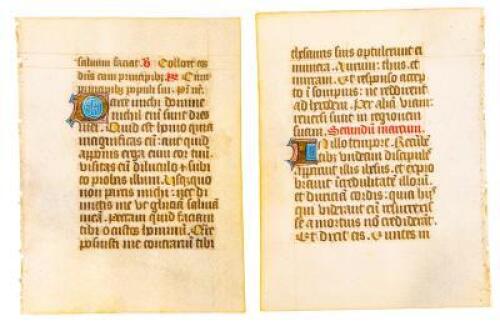 saluum faciat. V. Collocet eos
dñs cum principibz R. Cum
principibz populi sui. Pr nr.
Parce michi domine
nichil enĩ sunt dies
mei. Quid est homo quia
magnificas eũ: aut quid
apponis erga eum cor tuũ.
visitas eũ diluculo & subi
to probas illum. Usquequo
non parcis michi: nec di
mittis me ut glutiã saliuã
meã. Peccaui quid faciam
tibi o custos hominũ. Cur
posuisti me contrarium tibi
thesauris suis optulerunt ei
munera. Aurum: thus. et
mirram. Et responso accep
to ĩ sompnis: ne redirent
ad herodem. Per aliã uiam
reuersi sunt in regionem
suam. Secundũ marcum.
In illo tempore. Recũbẽ
tibz undecim discipulis
apparuit illis ihesus. et expro
brauit ĩcredulitatẽ illorũ.
et duriciam cordis: quia hiis
qui uiderant eũ resurrexis
se a mortuis nõ crediderãt.
Et dixit eis. Euntes in